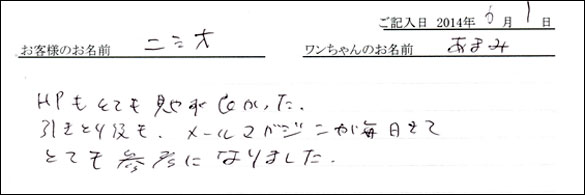 ご記入日 2014年 6月 1日
お客様のお名前 ワンちゃんのお名前 あまみ
HPもとても見やすかった.
引きとり後も、メールマガジンが毎日きて
とても参考になりました.